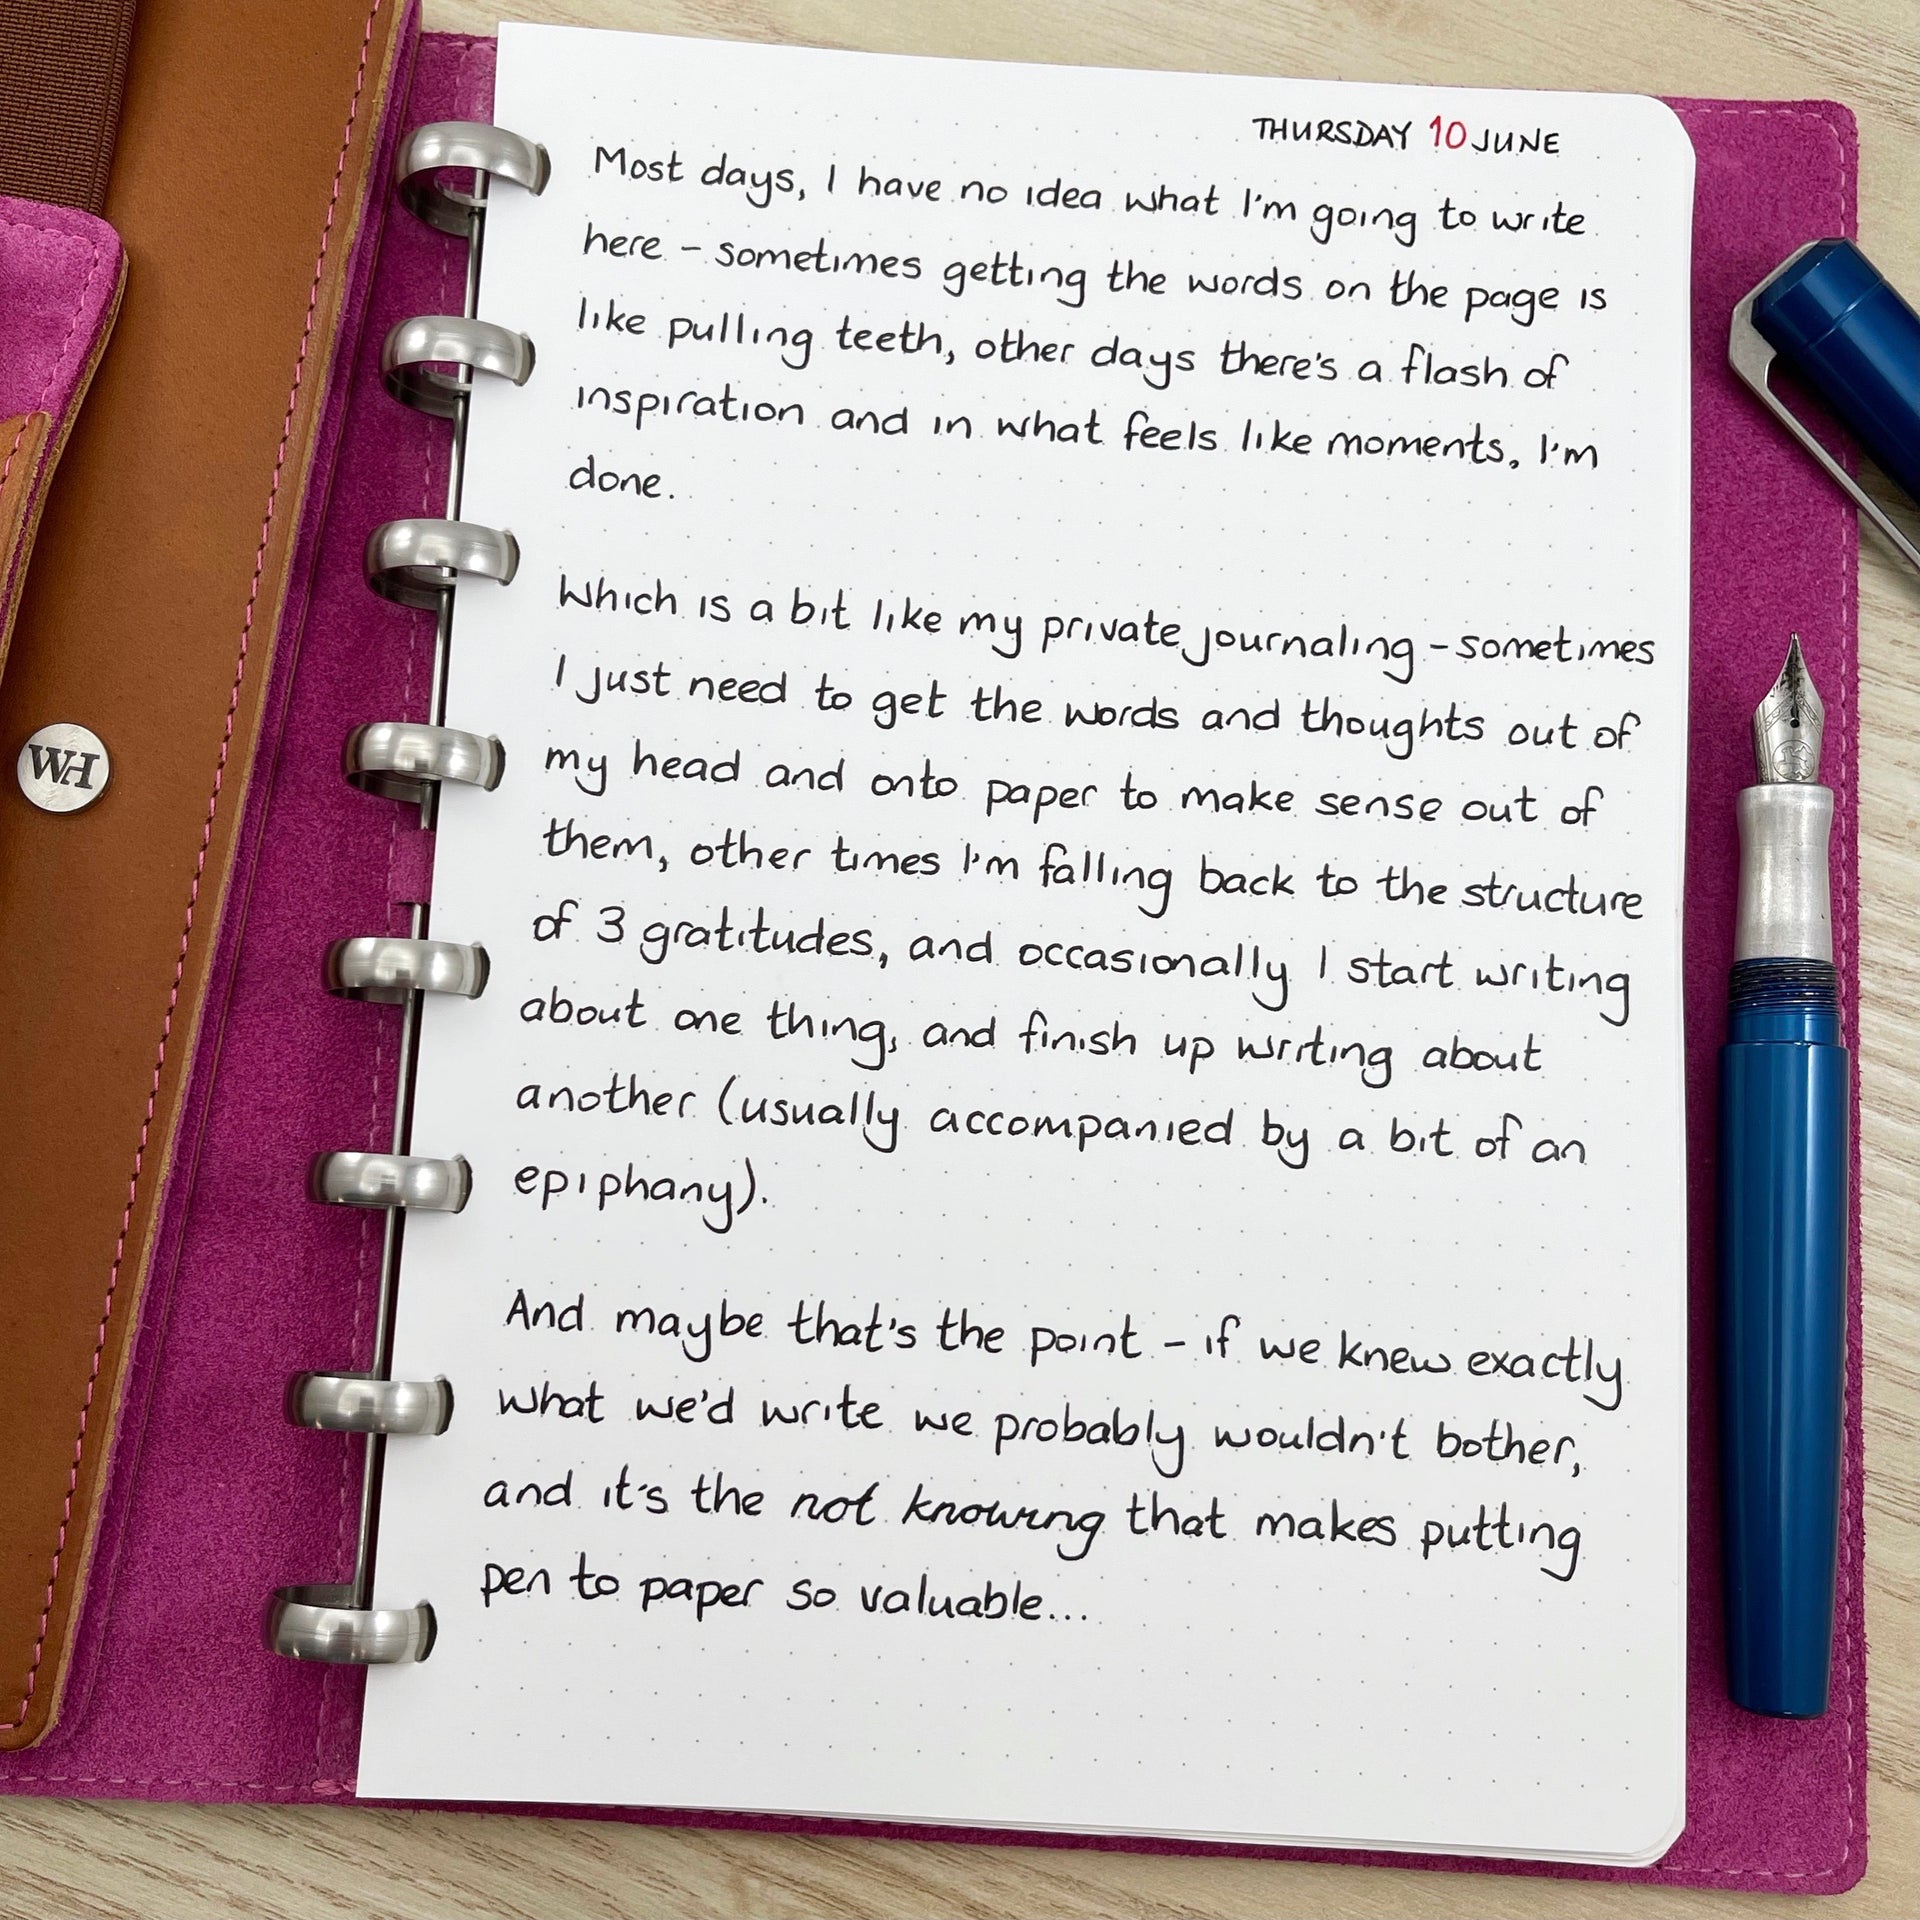 THURSDAY 10 JUNE
Most days, I have no idea what I'm going to write
here - sometimes getting the words on the page is
like pulling teeth, other days there's a flash of
inspiration and in what feels like moments, I'm
done.
Which is a bit like my private journaling - sometimes
I just need to get the words and thoughts out of
my head and onto paper to make sense out of
them, other times I'm falling back to the structure
of 3 gratitudes, and occasionally I start writing
about one thing, and finish up writing about
another (usually accompanied by a bit of an
epiphany).
And maybe that's the point - if we knew exactly
what we'd write we probably wouldn't bother,
and it's the not knowing that makes putting
pen to paper so valuable...
WH